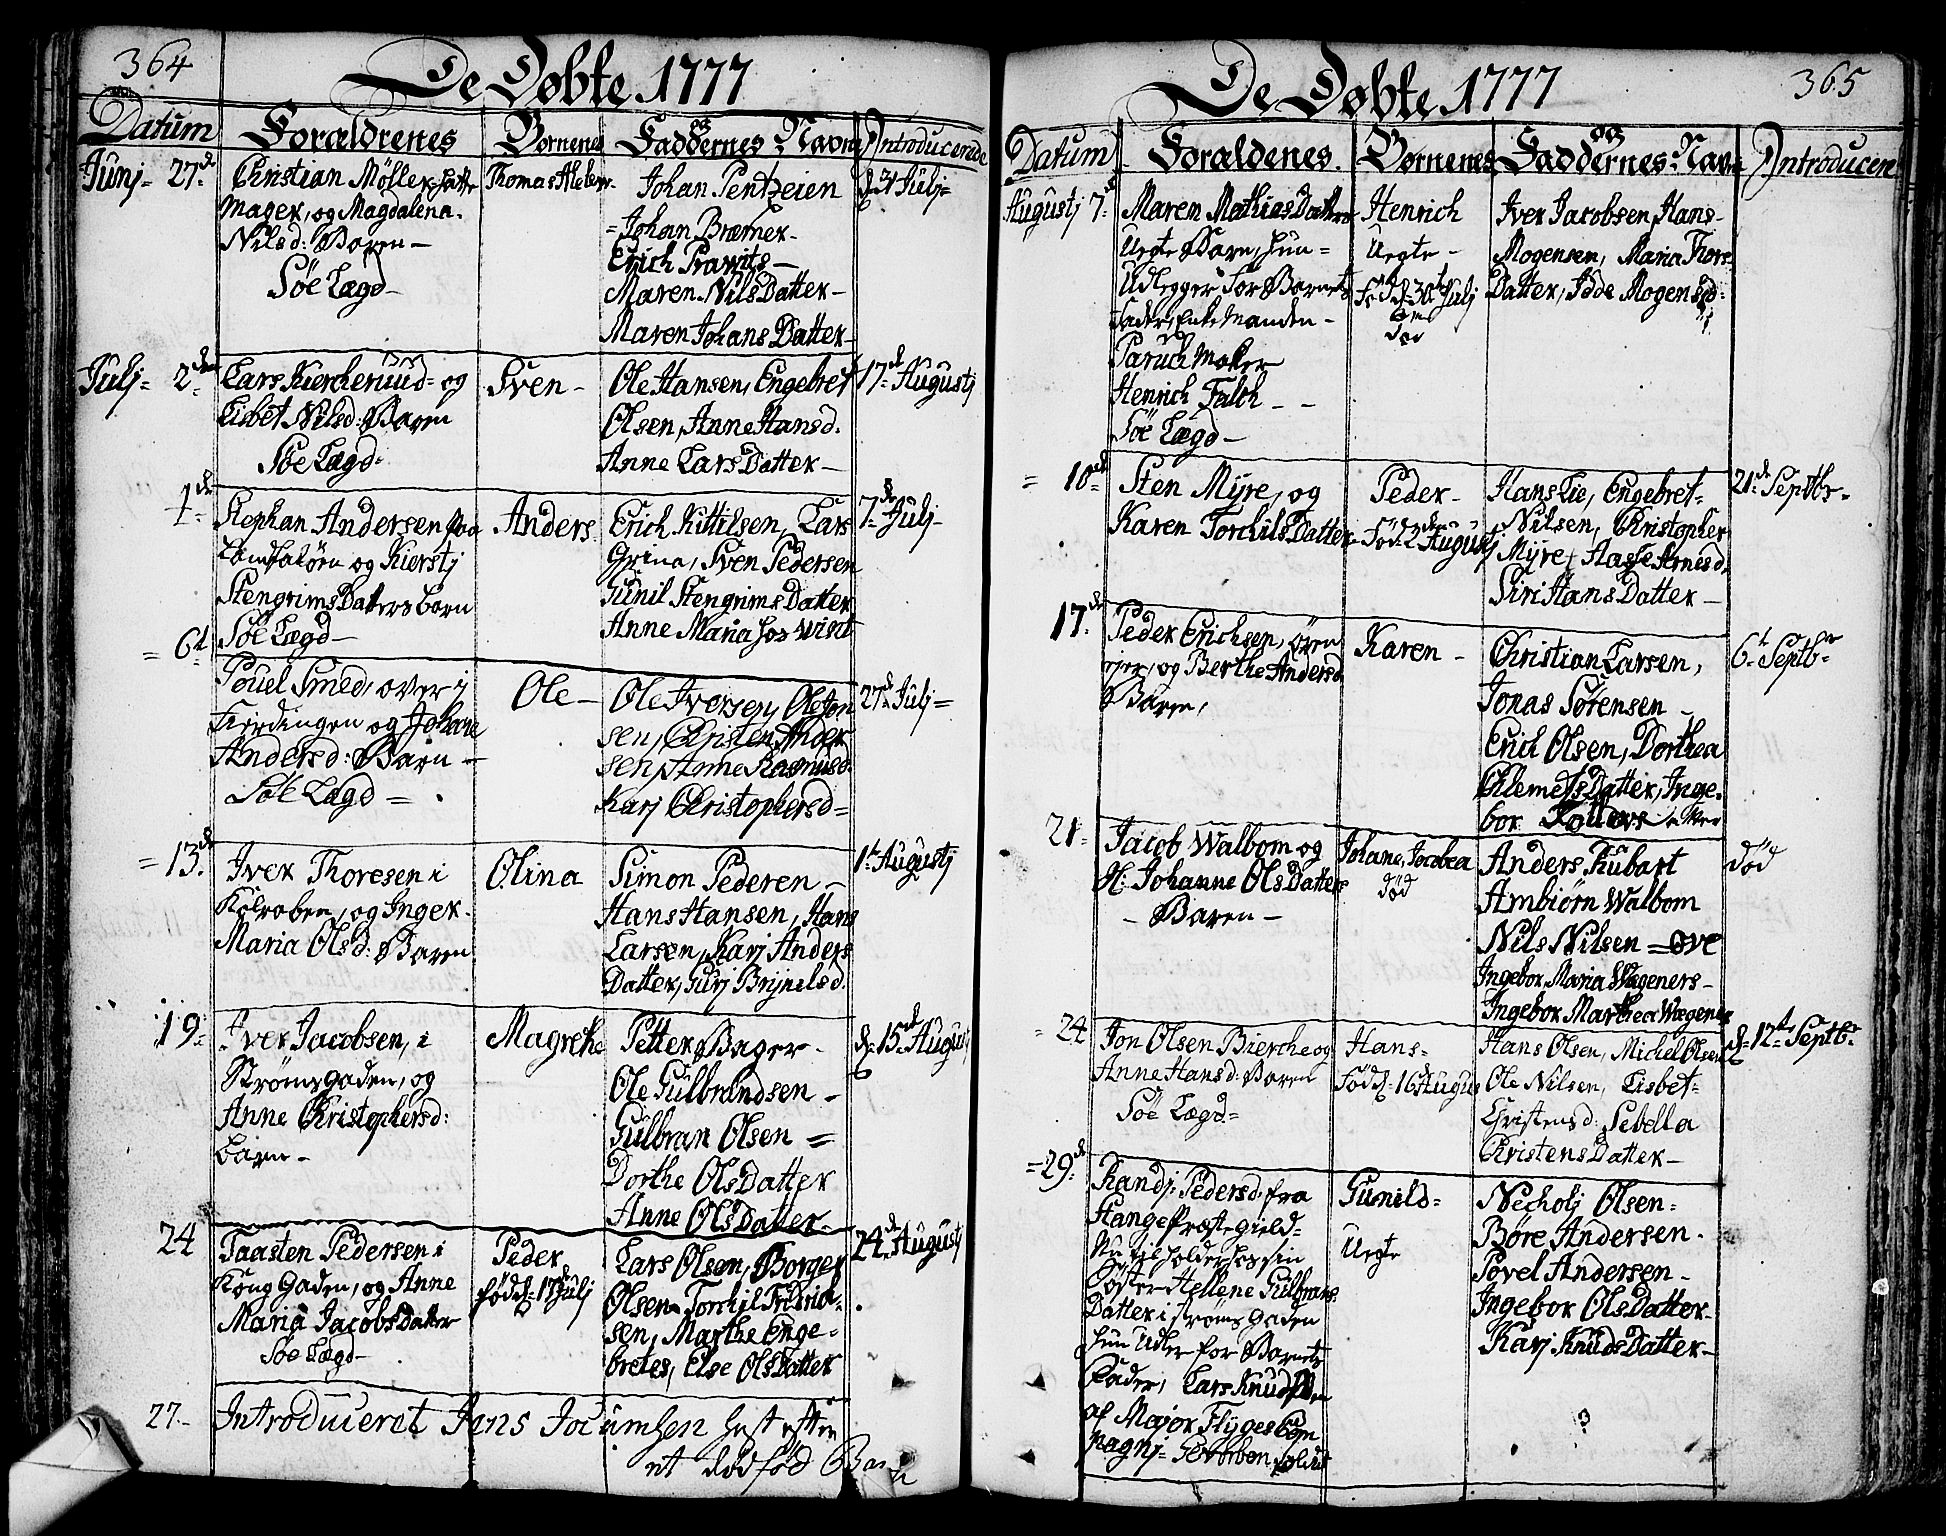 364
De Døbte 1777
Datum Forældrenes Børnenes og Faddernes Navne Introducerede
Junj 27de Christian Møller hatte
mager, og Magdalena
Nilsd: Baren
Søe Lægd
Johan Pentzeien
Johan Bræmer
Erich Prawits
Maren Nils Datter
Maren Johans Datter
d 31 Julj
Julj 2den Lars Kiercheruud og
Lisbet Nilsd: Baren
Søe Lægd
Sven
Ole Hansen, Engebret
Olsen, Anne Hansd.
Anne Lars Datter
17de Augustj
4de Stephan Andersen paa
og Kierstj
Stengrims Daters barn
Søe Lægd
Anders
Erich Kittilsen, Lars
Grina, Sven Pedersen
Gunil Stengrims Datter
Anne Maria hos Wint
7de Julj
6d Pouel Smed, over i
Fierdingen og Johane
Andersd: Barn
Søe Lægd
Ole
Ole Iversen, Ole Jon
sen, Christen Ander
sen, Anne Rasmusd.
Karj Christophersd
27de Julj
13de Iver Thoresen i
og Inger
Maria Olsd: Baren
Olina
Simon Pederen
Hans Hansen, Hans
Larsen, Karj Anders
Datter, Gurj Brynelsd
1t Augustj
19 Iver Jacobsen, i
Strøms Gaden, og
Anne Christophersd:
barn
Magrethe
Petter Bager
Ole Gulbrandsen
Gulbran Olsen
Dorthe Ols Datter
Anne Ols Datter
d 15de August
24 Taasten Pedersen i
Kong Gaden, og Anne
Maria Jacobs Datter
Søe Lægd
Peder
fød d: 17de Julj
Lars Olsen, Borger
Olsen, Torchil Fridrich
sen, Marthe Enge
bretes, Else Ols Datter
24de Augustj
27 Introduceret Jens Jocumsen hest efter
et dødfød Barn
365
De Døbte 1777
Datum Forældenes Børnenes og Faddernes Navne Introducere
Augustj 7de Maren Mathias Datters
Uegte Barn, hun
Udlegger for Barnets
fader, Enke Manden
Paruch Maker
Henrich Falch
Søe Lægd
Henrich
Uegte
fød d 30t Julj
død
Iver Jacobsen, Hans
Mogensen, Maria Thors
Datter, Idde Mogensd:
10de Sten Myre, og
Karen Torchils Datter
Peder
Fød: 2de Augustj
Hans Lie, Engebret
Nilsen, Christopher
Myre, Aase Arnesd.
Siri Hans Datter
21de Septbr
17de Peder Erichsen, ØrenEjer, og Berthe Andersd
Baren,
Karen
Christian Larsen,
Jonas Sørensen
Erich Olsen, Dorthea
Clemets Datter, Inge
bor
6t Septbr
21 Jacob Walbom og
H: Johanne Ols Datters
Baren
Johane Jocobea
død
Anders Kubart
Ambiørn Walbom
Nils Nilsen Ove
Ingebor Maria Wægeners
Ingebor Marthea Wægener
død
24 Jon Olsen Bierche og
Anne Hansd: Baren
Søe Lægd
Hans
Fød d: 16de Augus
Hans Olsen, Michel Olsen
Ole Nilsen, Lisbet
Christensd: Sebella
Christens Datter
d: 12te Septbr
29de Randj: Pedersd, fra
Hange Præste gield
Nu til holder hos sin
søster Hellene Gulbrans
Datter i strøms Gaden
hun Udler for Barnets
Fader, Lars Knudsen
af Major Flyges Com
pagnj Soldat
Gunild
Uegte
Necholj Olsen
Børe Andersen
Povel Andersen
Ingebor Ols Datter
Karj Knuds Datter